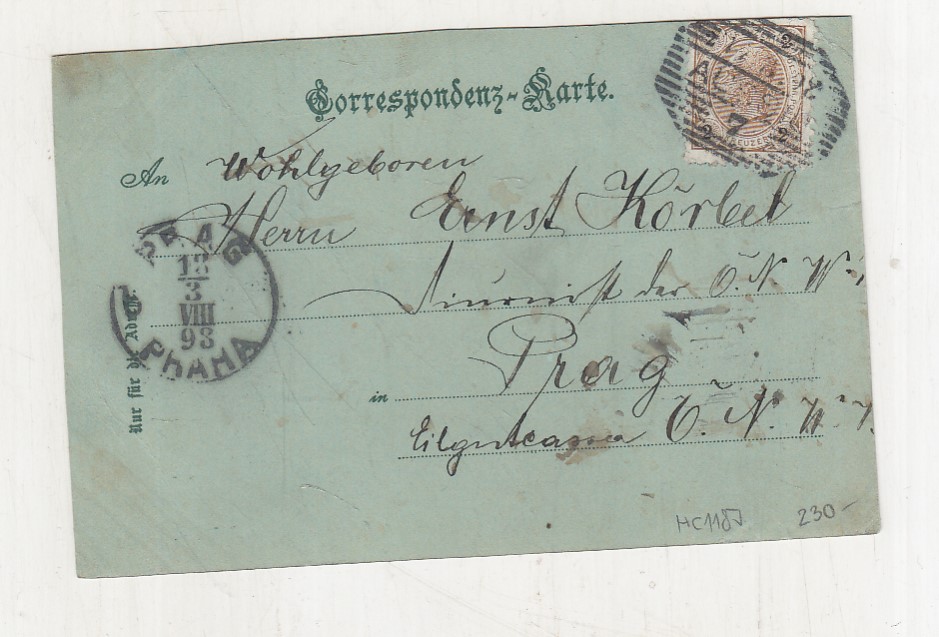 Correspondenz-Karte.
2 2
KREUZER
2 2
An Wohlgeboren
Herrn Ernst Körbel
Diurnist der Ö. N. W. B.
in Prag
Eilgutcassa Ö. N. W. B.
PRAG
3
VIII
98
PRAHA
Nur für die Adresse.
HC1187
230-